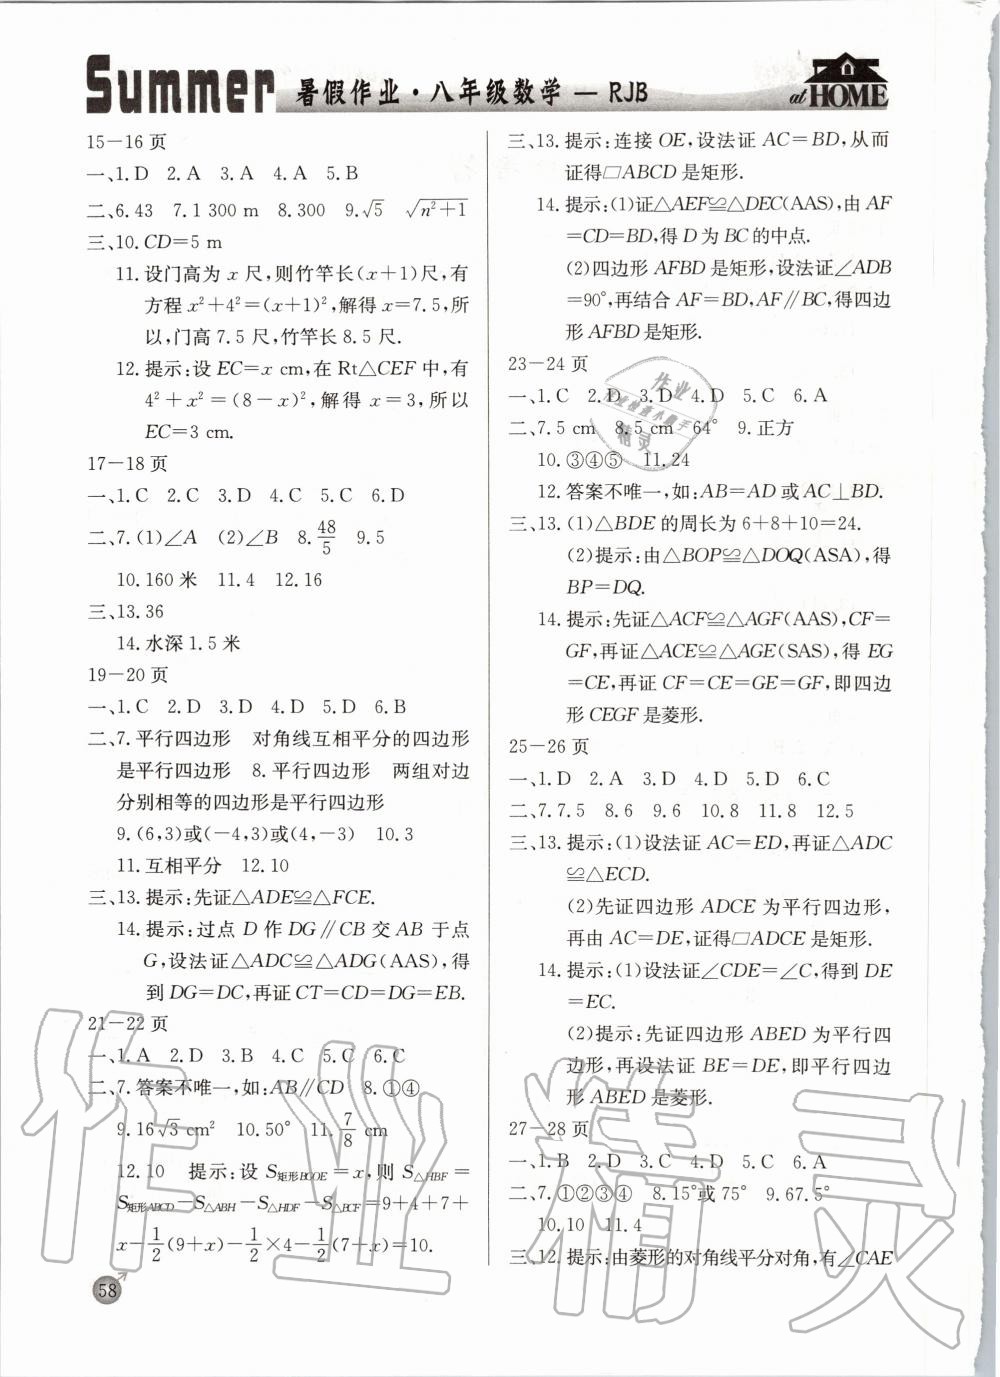 Summer 暑假作业·八年级数学 — RJB at HOME
15—16 页
一、1. D 2. A 3. A 4. A 5. B
二、6. 43 7. 1 300 m 8. 300 9. √5 √(n²+1)
三、10. CD=5 m
11. 设门高为 x 尺,则竹竿长(x+1)尺,有
方程 x²+4²=(x+1)²,解得 x=7.5,所
以,门高 7.5 尺,竹竿长 8.5 尺.
12. 提示:设 EC=x cm,在 Rt△CEF 中,有
4²+x²=(8-x)²,解得 x=3,所以
EC=3 cm.
17—18 页
一、1. C 2. C 3. D 4. C 5. C 6. D
二、7. (1)∠A (2)∠B 8. 48/5 9. 5
10. 160 米 11. 4 12. 16
三、13. 36
14. 水深 1.5 米
19—20 页
一、1. C 2. D 3. D 4. D 5. D 6. B
二、7. 平行四边形 对角线互相平分的四边形
是平行四边形 8. 平行四边形 两组对边
分别相等的四边形是平行四边形
9. (6,3)或(-4,3)或(4,-3) 10. 3
11. 互相平分 12. 10
三、13. 提示:先证△ADE≌△FCE.
14. 提示:过点 D 作 DG∥CB 交 AB 于点
G,设法证△ADC≌△ADG(AAS),得
到 DG=DC,再证 CT=CD=DG=EB.
21—22 页
一、1. A 2. D 3. B 4. C 5. C 6. C
二、7. 答案不唯一,如:AB∥CD 8. ①④
9. 16√3 cm² 10. 50° 11. 7/8 cm
12. 10 提示:设 S矩形BGOE=x,则 S△HBF=
S矩形ABCD-S△ABH-S△HDF-S△BCF=9+4+7+
x-1/2(9+x)-1/2×4-1/2(7+x)=10.
58
三、13. 提示:连接 OE,设法证 AC=BD,从而
证得□ABCD 是矩形.
14. 提示:(1)证△AEF≌△DEC(AAS),由 AF
=CD=BD,得 D 为 BC 的中点.
(2)四边形 AFBD 是矩形,设法证∠ADB
=90°,再结合 AF=BD,AF∥BC,得四边
形 AFBD 是矩形.
23—24 页
一、1. C 2. D 3. D 4. D 5. C 6. A
二、7. 5 cm 8. 5 cm 64° 9. 正方
10. ③④⑤ 11. 24
12. 答案不唯一,如:AB=AD 或 AC⊥BD.
三、13. (1)△BDE 的周长为 6+8+10=24.
(2)提示:由△BOP≌△DOQ(ASA),得
BP=DQ.
14. 提示:先证△ACF≌△AGF(AAS),CF=
GF,再证△ACE≌△AGE(SAS),得 EG
=CE,再证 CF=CE=GE=GF,即四边
形 CEGF 是菱形.
25—26 页
一、1. D 2. A 3. D 4. D 5. D 6. C
二、7. 7.5 8. 6 9. 6 10. 8 11. 8 12. 5
三、13. 提示:(1)设法证 AC=ED,再证△ADC
≌△ECD.
(2)先证四边形 ADCE 为平行四边形,
再由 AC=DE,证得□ADCE 是矩形.
14. 提示:(1)设法证∠CDE=∠C,得到 DE
=EC.
(2)提示:先证四边形 ABED 为平行四
边形,再设法证 BE=DE,即平行四边形
ABED 是菱形.
27—28 页
一、1. B 2. D 3. D 4. D 5. C 6. A
二、7. ①②③④ 8. 15°或 75° 9. 67.5°
10. 10 11. 4
三、12. 提示:由菱形的对角线平分对角,有∠CAE
作业精灵